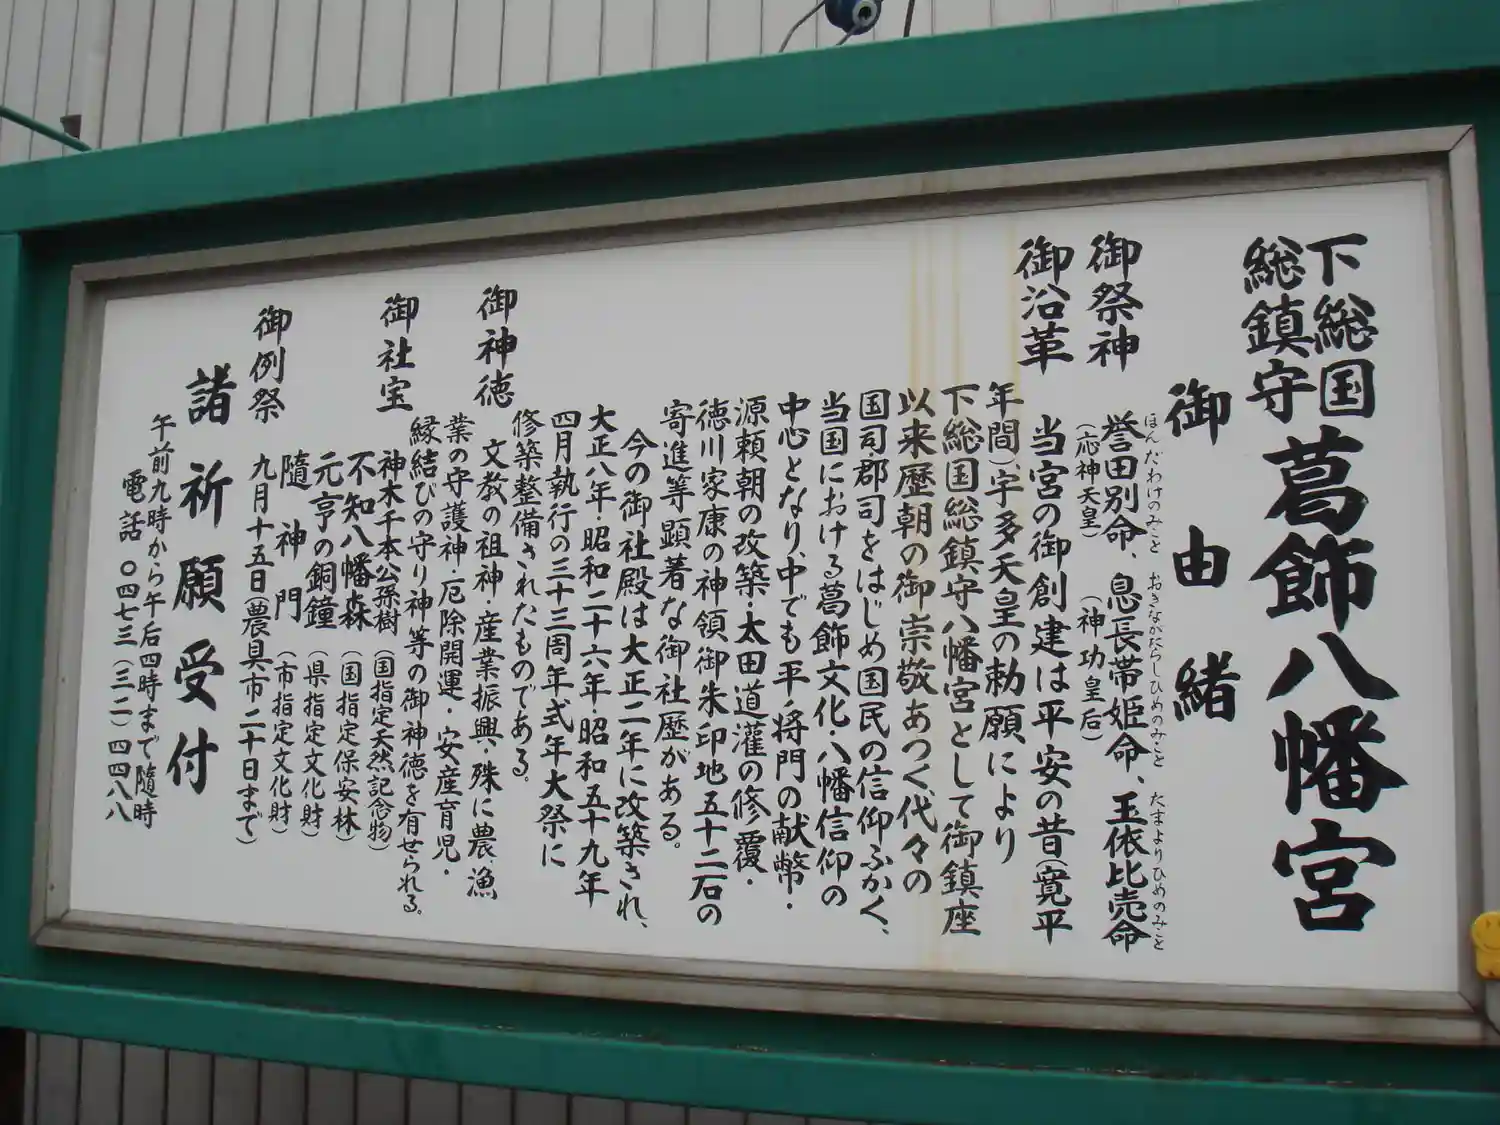 下総国
総鎮守
葛飾八幡宮
御由緒
御祭神
誉田別命、息長帯姫命、玉依比売命
ほんだわけのみこと おきながたらしひめのみこと たまよりひめのみこと
（応神天皇）（神功皇后）
御沿革
当宮の御創建は平安の昔（寛平
年間）、宇多天皇の勅願により
下総国総鎮守八幡宮として御鎮座
以来歴朝の御崇敬あつく、代々の
国司郡司をはじめ国民の信仰ふかく、
当国における葛飾文化・八幡信仰の
中心となり、中でも平ノ将門の献幣・
源頼朝の改築・太田道灌の修覆・
徳川家康の神領御朱印地五十二石の
寄進等顕著な御社歴がある。
今の御社殿は大正二年に改築され、
大正八年・昭和二十六年・昭和五十九年
四月執行の三十三周年式年大祭に
修築整備されたものである。
御神徳
文教の祖神・産業振興・殊に農・漁
業の守護神・厄除開運・安産育児・
縁結びの守り神等の御神徳を有せられる。
御社宝
神木千本公孫樹（国指定天然記念物）
不知八幡森（国指定保安林）
元亨の銅鐘（県指定文化財）
随神門（市指定文化財）
御例祭
九月十五日（農具市二十日まで）
諸祈願受付
午前九時から午后四時まで随時
電話〇四七三（三二）四四八八